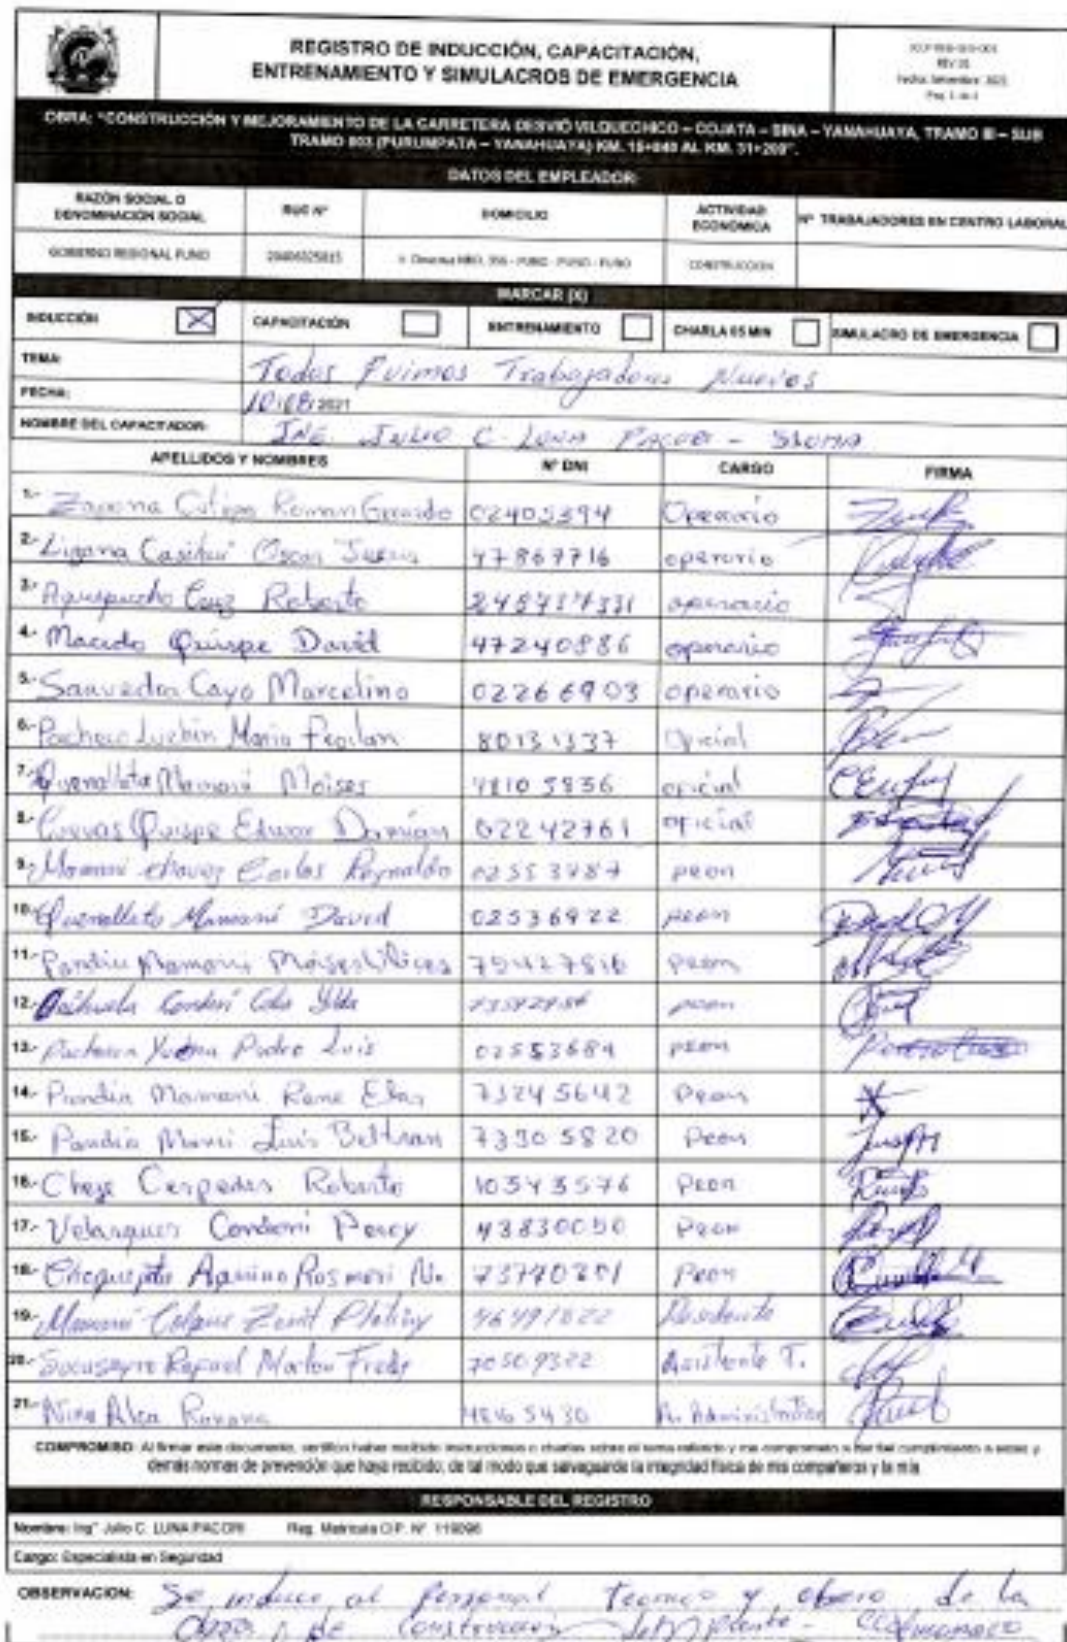 REGISTRO DE INDUCCIÓN, CAPACITACIÓN,
ENTRENAMIENTO Y SIMULACROS DE EMERGENCIA
REV 01
Fecha: Setiembre 2021
Pag. 1 de 1
OBRA: "CONSTRUCCIÓN Y MEJORAMIENTO DE LA CARRETERA DESVIÓ VILQUECHICO – COJATA – SINA – YANAHUAYA, TRAMO III – SUB
TRAMO 003 (PURUMPATA – YANAHUAYA) KM. 15+040 AL KM. 31+200".
DATOS DEL EMPLEADOR:
RAZÓN SOCIAL O DENOMINACIÓN SOCIAL RUC Nº DOMICILIO ACTIVIDAD ECONÓMICA Nº TRABAJADORES EN CENTRO LABORAL
GOBIERNO REGIONAL PUNO 20406325815 PUNO - PUNO - PUNO CONSTRUCCION
MARCAR (X)
INDUCCIÓN X CAPACITACIÓN ENTRENAMIENTO CHARLA 05 MIN SIMULACRO DE EMERGENCIA
TEMA: Todos Fuimos Trabajadores Nuevos
FECHA: 10/08/2021
NOMBRE DEL CAPACITADOR: ING. JULIO C. LUNA PACORI -
APELLIDOS Y NOMBRES Nº DNI CARGO FIRMA
1.- Zapana Cutipa Roman Gerardo 02405394 Operario
2.- Lizana Oscar 47867716 operario
3.- Cruz Roberto operario
4.- Macedo Quispe David 47240886 operario
5.- Saavedra Cayo Marcelino 02266903 operario
6.- Pacheco Mario Froilan 80131337 Oficial
7.- Quenallata Mamani Moises 48105836 oficial
8.- Cuevas Quispe Edwar Damian 02242761 oficial
9.- Mamani Chavez Carlos Reynaldo 02553787 peon
10.- Quenallata Mamani David 02536922 peon
11.- Pandia Mamani Moises peon
12.- Condori peon
13.- Pedro Luis 02553684 peon
14.- Pandia Mamani Rene 73245642 Peon
15.- Pandia Luis Beltran 73305820 Peon
16.- Cespedes Roberto 10543576 Peon
17.- Velasquez Condori Percy 43830050 Peon
18.- Aquino Rosmeri 73790201 Peon
19.- Mamani 46491822 Residente
20.- Fredy 70509322 Asistente T.
21.- Nina Alca 48165430 A. Administrativo
COMPROMISO: Al firmar este documento, certifico haber recibido instrucciones o charlas sobre el tema referido y me comprometo a dar fiel cumplimiento a estas y
demás normas de prevención que haya recibido; de tal modo que salvaguarde la integridad física de mis compañeros y la mía
RESPONSABLE DEL REGISTRO
Nombre: Ingº Julio C. LUNA PACORI Reg. Matricula CIP. Nº 119096
Cargo: Especialista en Seguridad
OBSERVACION: Se induce al Personal Tecnico y obrero de la
Obra de Construccion